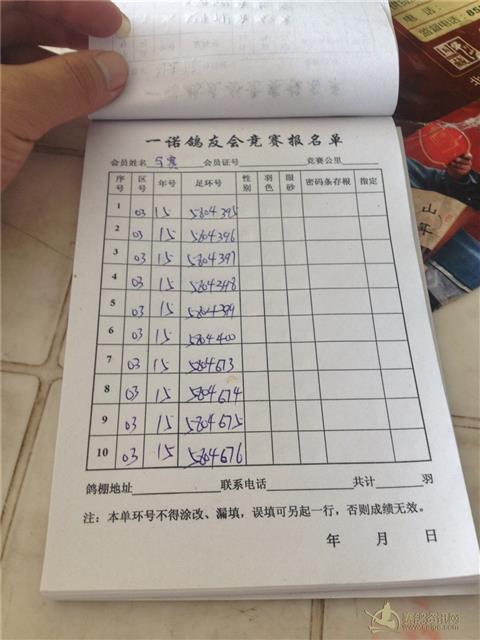 一诺鸽友会竞赛报名单
会员姓名 会员证号 竞赛公里
序号 区号 年号 足环号 性别 羽色 眼砂 密码条存根 指定
1 03 15 5804395
2 03 15 5804396
3 03 15 5804397
4 03 15 5804398
5 03 15 5804399
6 03 15 5804400
7 03 15 5804673
8 03 15 5804674
9 03 15 5804675
10 03 15 5804676
鸽棚地址 联系电话 共计 羽
注：本单环号不得涂改、漏填，误填可另起一行，否则成绩无效。
年 月 日
电话：